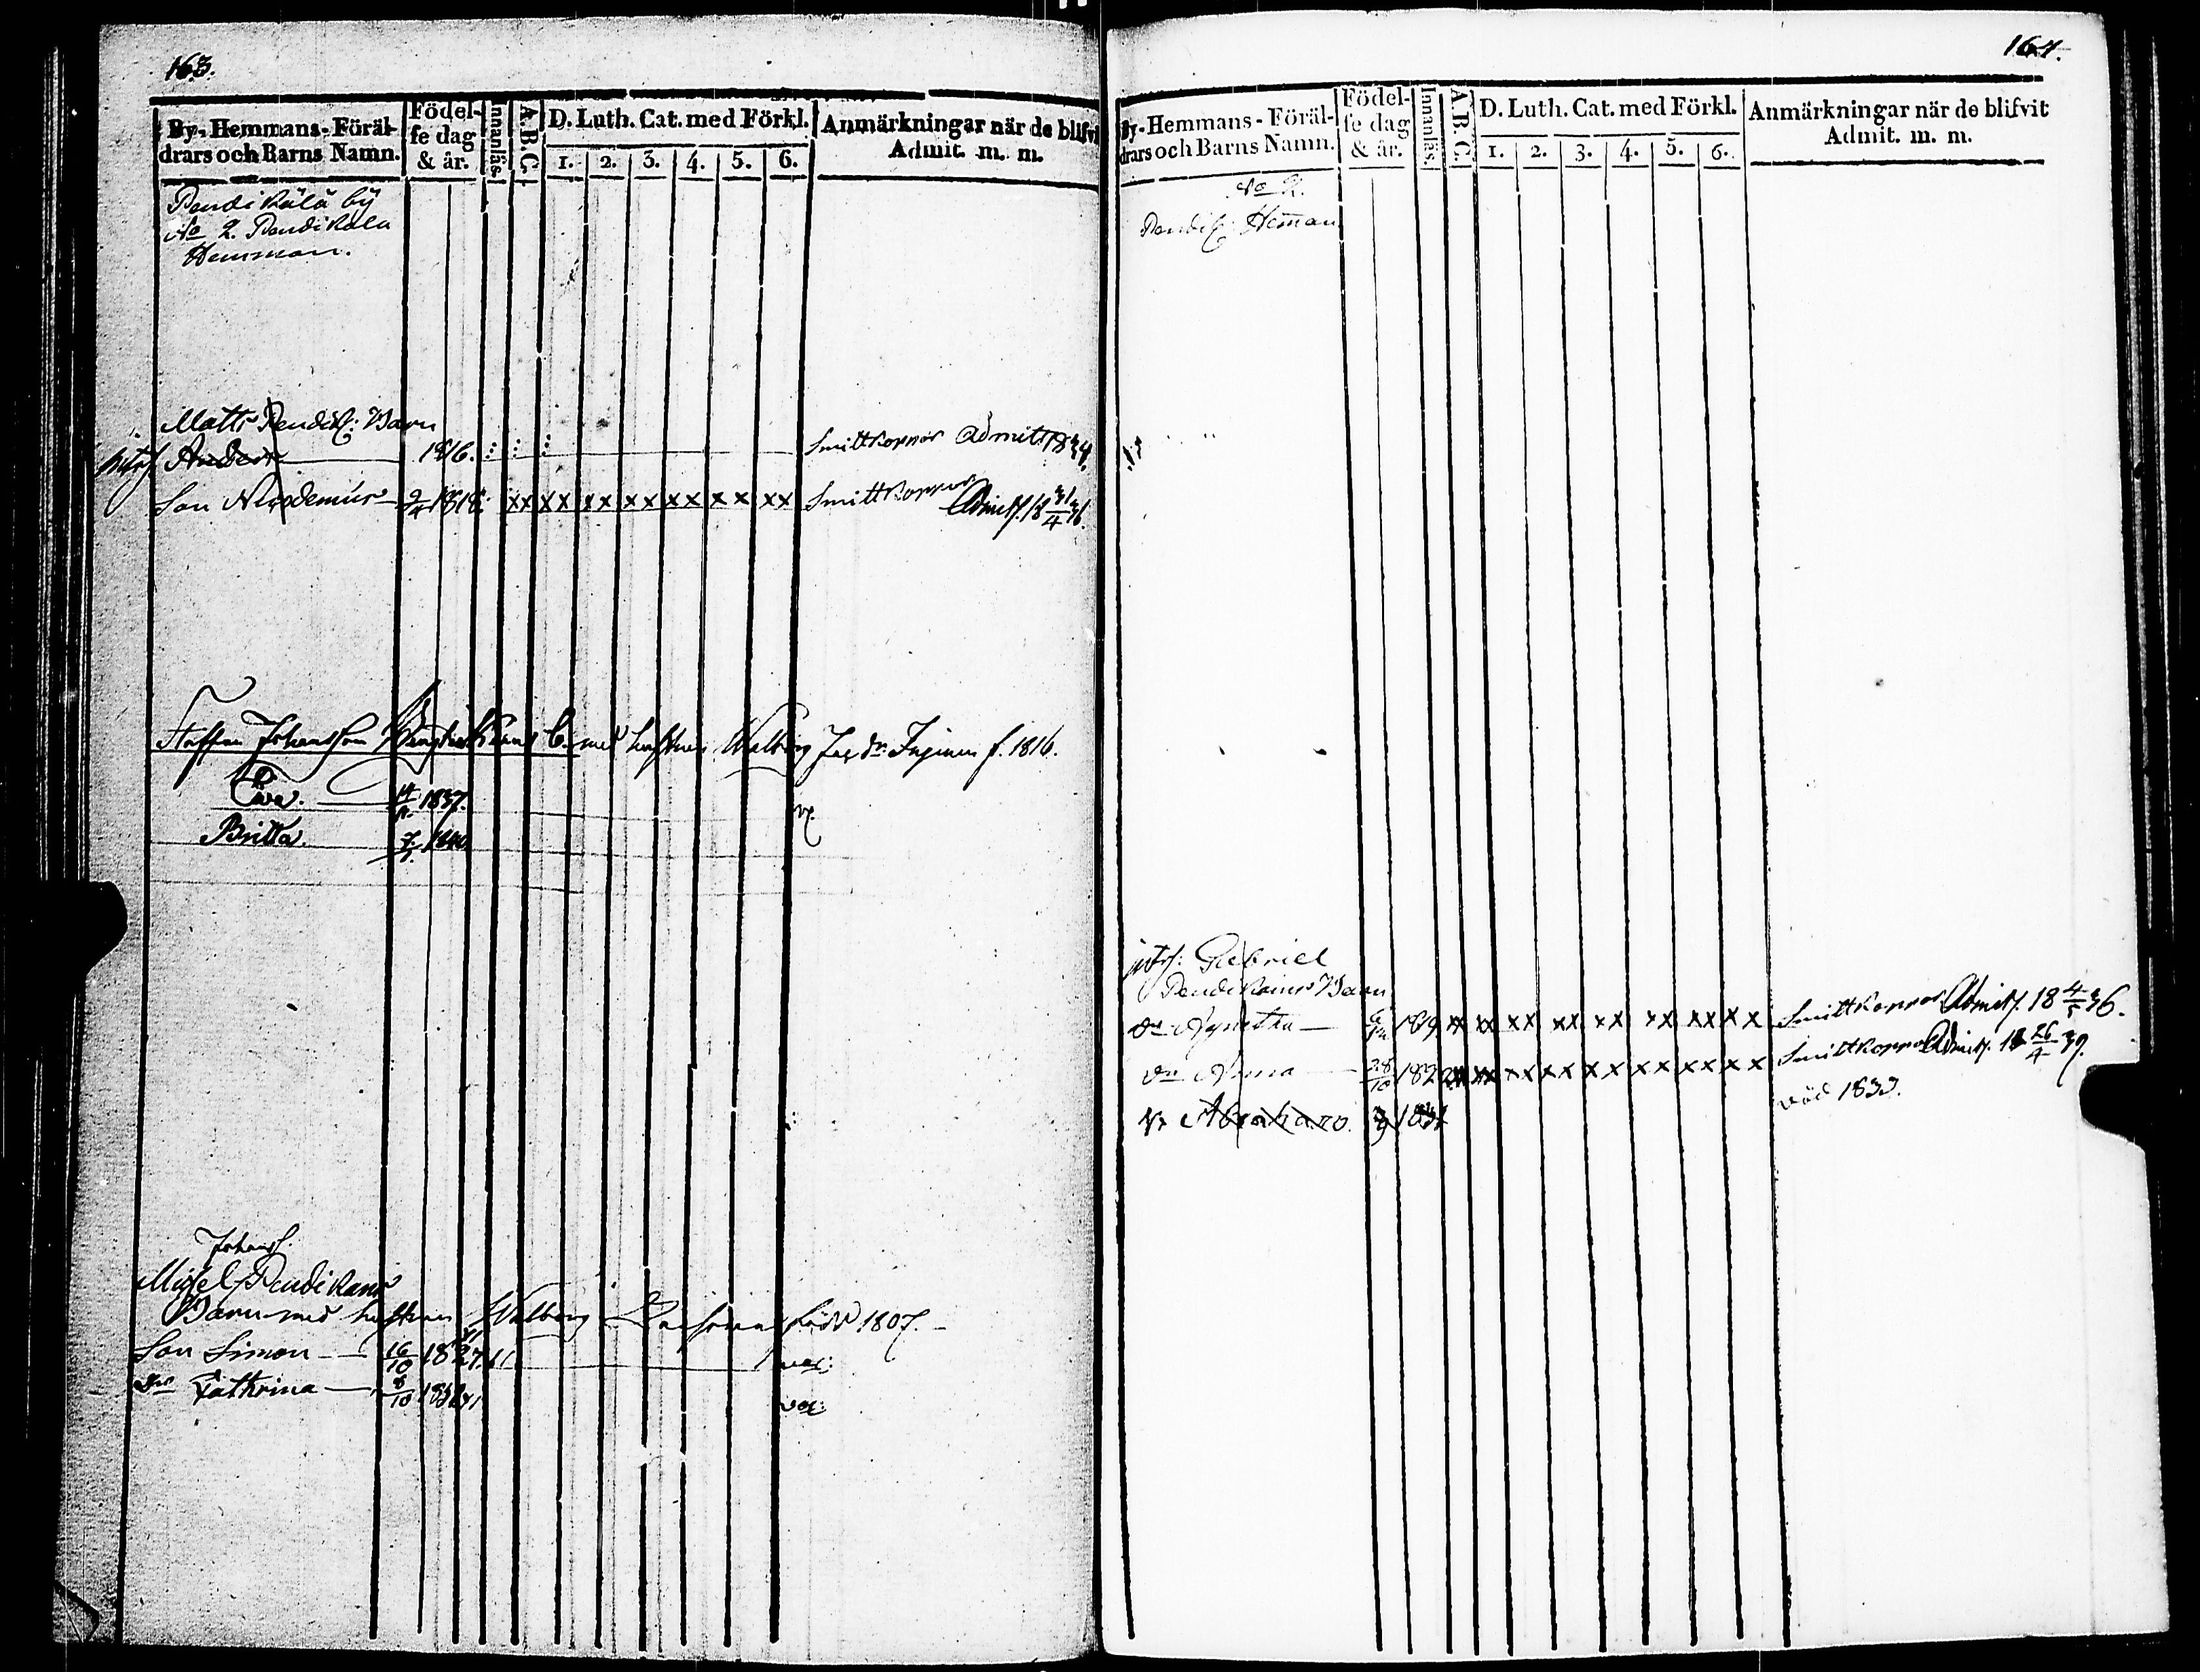 163.
By-Hemmans-Föräl-
drars och Barns Namn.
Födel-
se dag
& år.
Innanläs.
A.B.C.
D. Luth. Cat. med Förkl.
1. 2. 3. 4. 5. 6.
Anmärkningar när de blifvi
Admit. m. m.
Pendikälä by
No 2. Pendikala
Hemman.
Matts Pendik: Barn
Anders 1816. Smittkoppor Admitt 1834.
Son Nicodemus 1818. xx xx xx xx xx xx xx Smittkoppor
Admitt. 18 31/4 36.
Staffan Johansson med hustrun Walborg Jac dr f. 1816.
Ewa. 1837. v.
Britta. 1840
Johanss.
Michel Pendikain
Barn med hustrun Walborg född 1807.
Son Simon 16/10 1827. vac:
Dr Cathrina 8/10 1832 vac:
164.
By-Hemmans-Föräl-
drars och Barns Namn.
Födel-
se dag
& år.
Innanläs.
A.B.C.
D. Luth. Cat. med Förkl.
1. 2. 3. 4. 5. 6.
Anmärkningar när de blifvit
Admit. m. m.
No 2.
Pendik: Hem̄an
Gabriel
Pendikains Barn
Dr Agnetha 1819 xx xx xx xx xx xx xx x x Smittkoppor Admitt. 18 4/5 36.
Dr Anna 28/10 1822 xx xx xx xx xx xx xx x x Smittkoppor Admitt. 18 26/4 39.
Abraham 1831 död 1833.